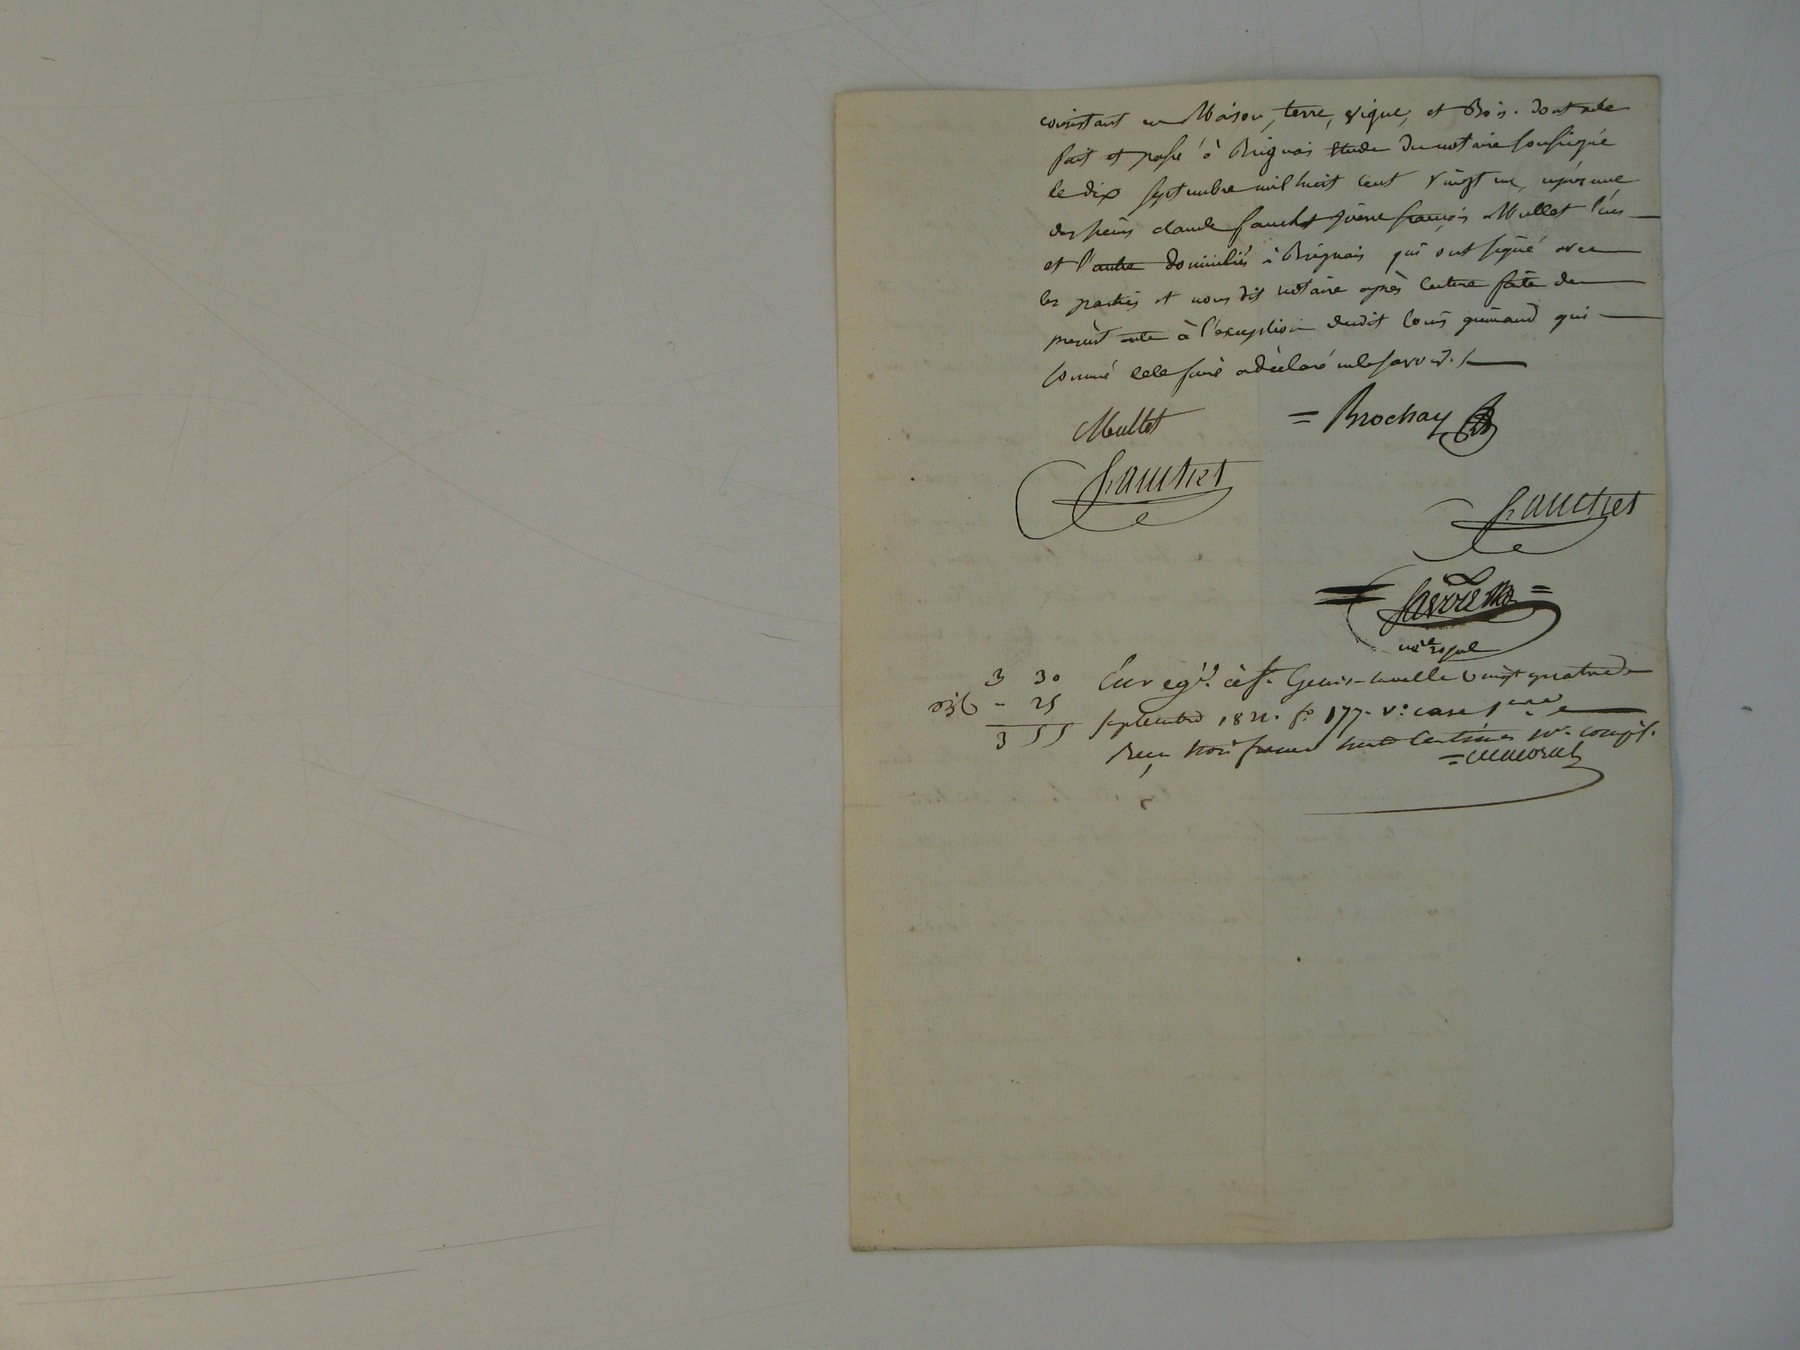 consistant en Maison, terre, vigne, et Bois. dont acte
fait et passé à Brignais Etude du notaire soussigné
le dix septembre mil huit cent vingt un, en présence
des sieurs claude fauchet pierre françois Mullet l'un
et l'autre domiciliés à Brignais qui ont signé avec
les parties et nous dit notaire après lecture faite du
present acte à l'exception dudit Louis guinand qui
sommé de le faire a déclaré ne le savoir./.
Mullet = Brochay
fauchet
fauchet
nre royal
3 30 Enregé. à St. Genis-Laval le vingt quatre
- 25 septembre 1821. fo. 177. vo. case
3 55 Reçu trois francs trente centimes